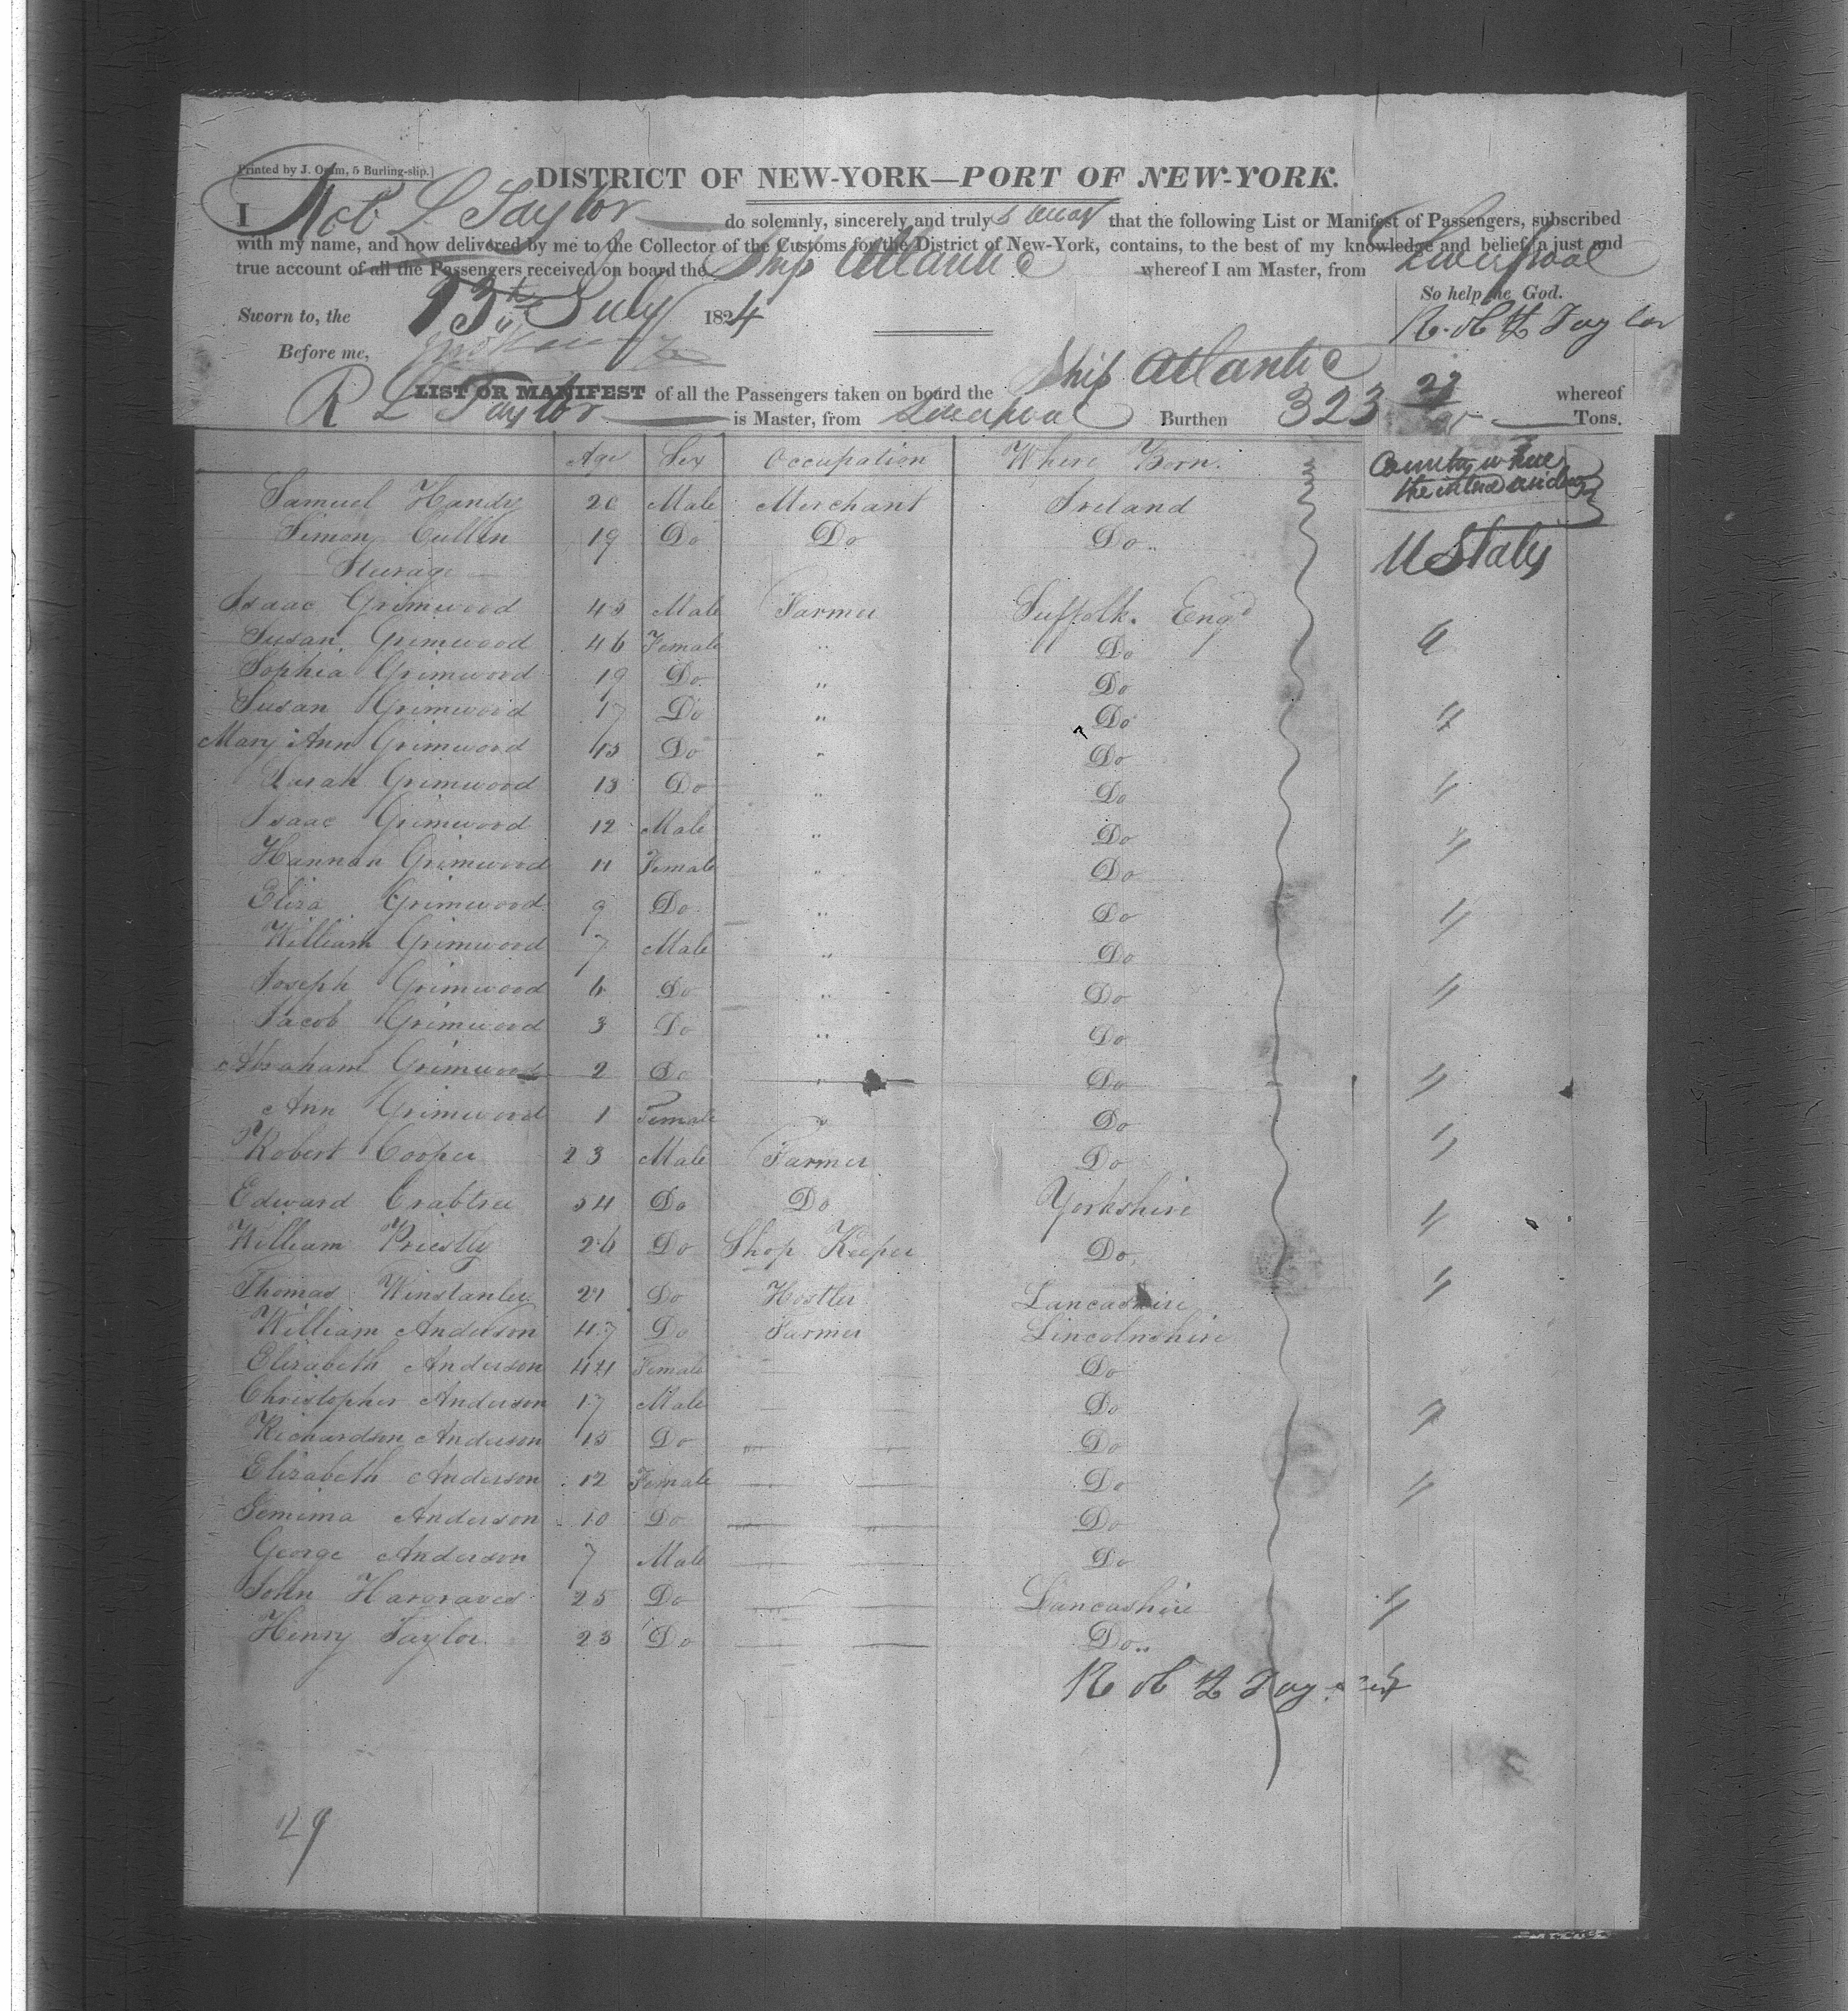 Printed by J. Oram, 5 Burling-slip.]
DISTRICT OF NEW-YORK—PORT OF NEW-YORK.
I Rob L Taylor do solemnly, sincerely and truly swear that the following List or Manifest of Passengers, subscribed
with my name, and now delivered by me to the Collector of the Customs for the District of New-York, contains, to the best of my knowledge and belief, a just and
true account of all the Passengers received on board the Ship Atlantic whereof I am Master, from Liverpool
So help me God.
Sworn to, the 13th July 1824
Robt L Taylor
Before me,
LIST OR MANIFEST of all the Passengers taken on board the Ship Atlantic whereof
R L Taylor is Master, from Liverpool Burthen 323 Tons.
Age Sex Occupation Where Born. Country where they intend
Samuel Handy 20 Male Merchant Ireland
Simon Cullen 19 Do Do Do U States
Steerage
Isaac Grimwood 45 Male Farmer Suffolk. Engd
Susan Grimwood 46 Female " Do
Sophia Grimwood 19 Do " Do
Susan Grimwood 17 Do " Do
Mary Ann Grimwood 15 Do " Do
Sarah Grimwood 13 Do " Do
Isaac Grimwood 12 Male " Do
Hannah Grimwood 11 Female " Do
Eliza Grimwood 9 Do " Do
William Grimwood 7 Male " Do
Joseph Grimwood 6 Do " Do
Jacob Grimwood 3 Do " Do
Abraham Grimwood 2 Do " Do
Ann Grimwood 1 Female " Do
Robert Cooper 23 Male Farmer Do
Edward Crabtree 34 Do Do Yorkshire
William Priestly 26 Do Shop Keeper Do
Thomas Winstanley 21 Do Hostler Lancashire
William Anderson 47 Do Farmer Lincolnshire
Elizabeth Anderson 44 Female Do
Christopher Anderson 17 Male Do
Richardson Anderson 15 Do Do
Elizabeth Anderson 12 Female Do
Jemima Anderson 10 Do Do
George Anderson 7 Male Do
John Hargraves 25 Do Lancashire
Henry Taylor 23 Do Do
Robt L Taylor
29